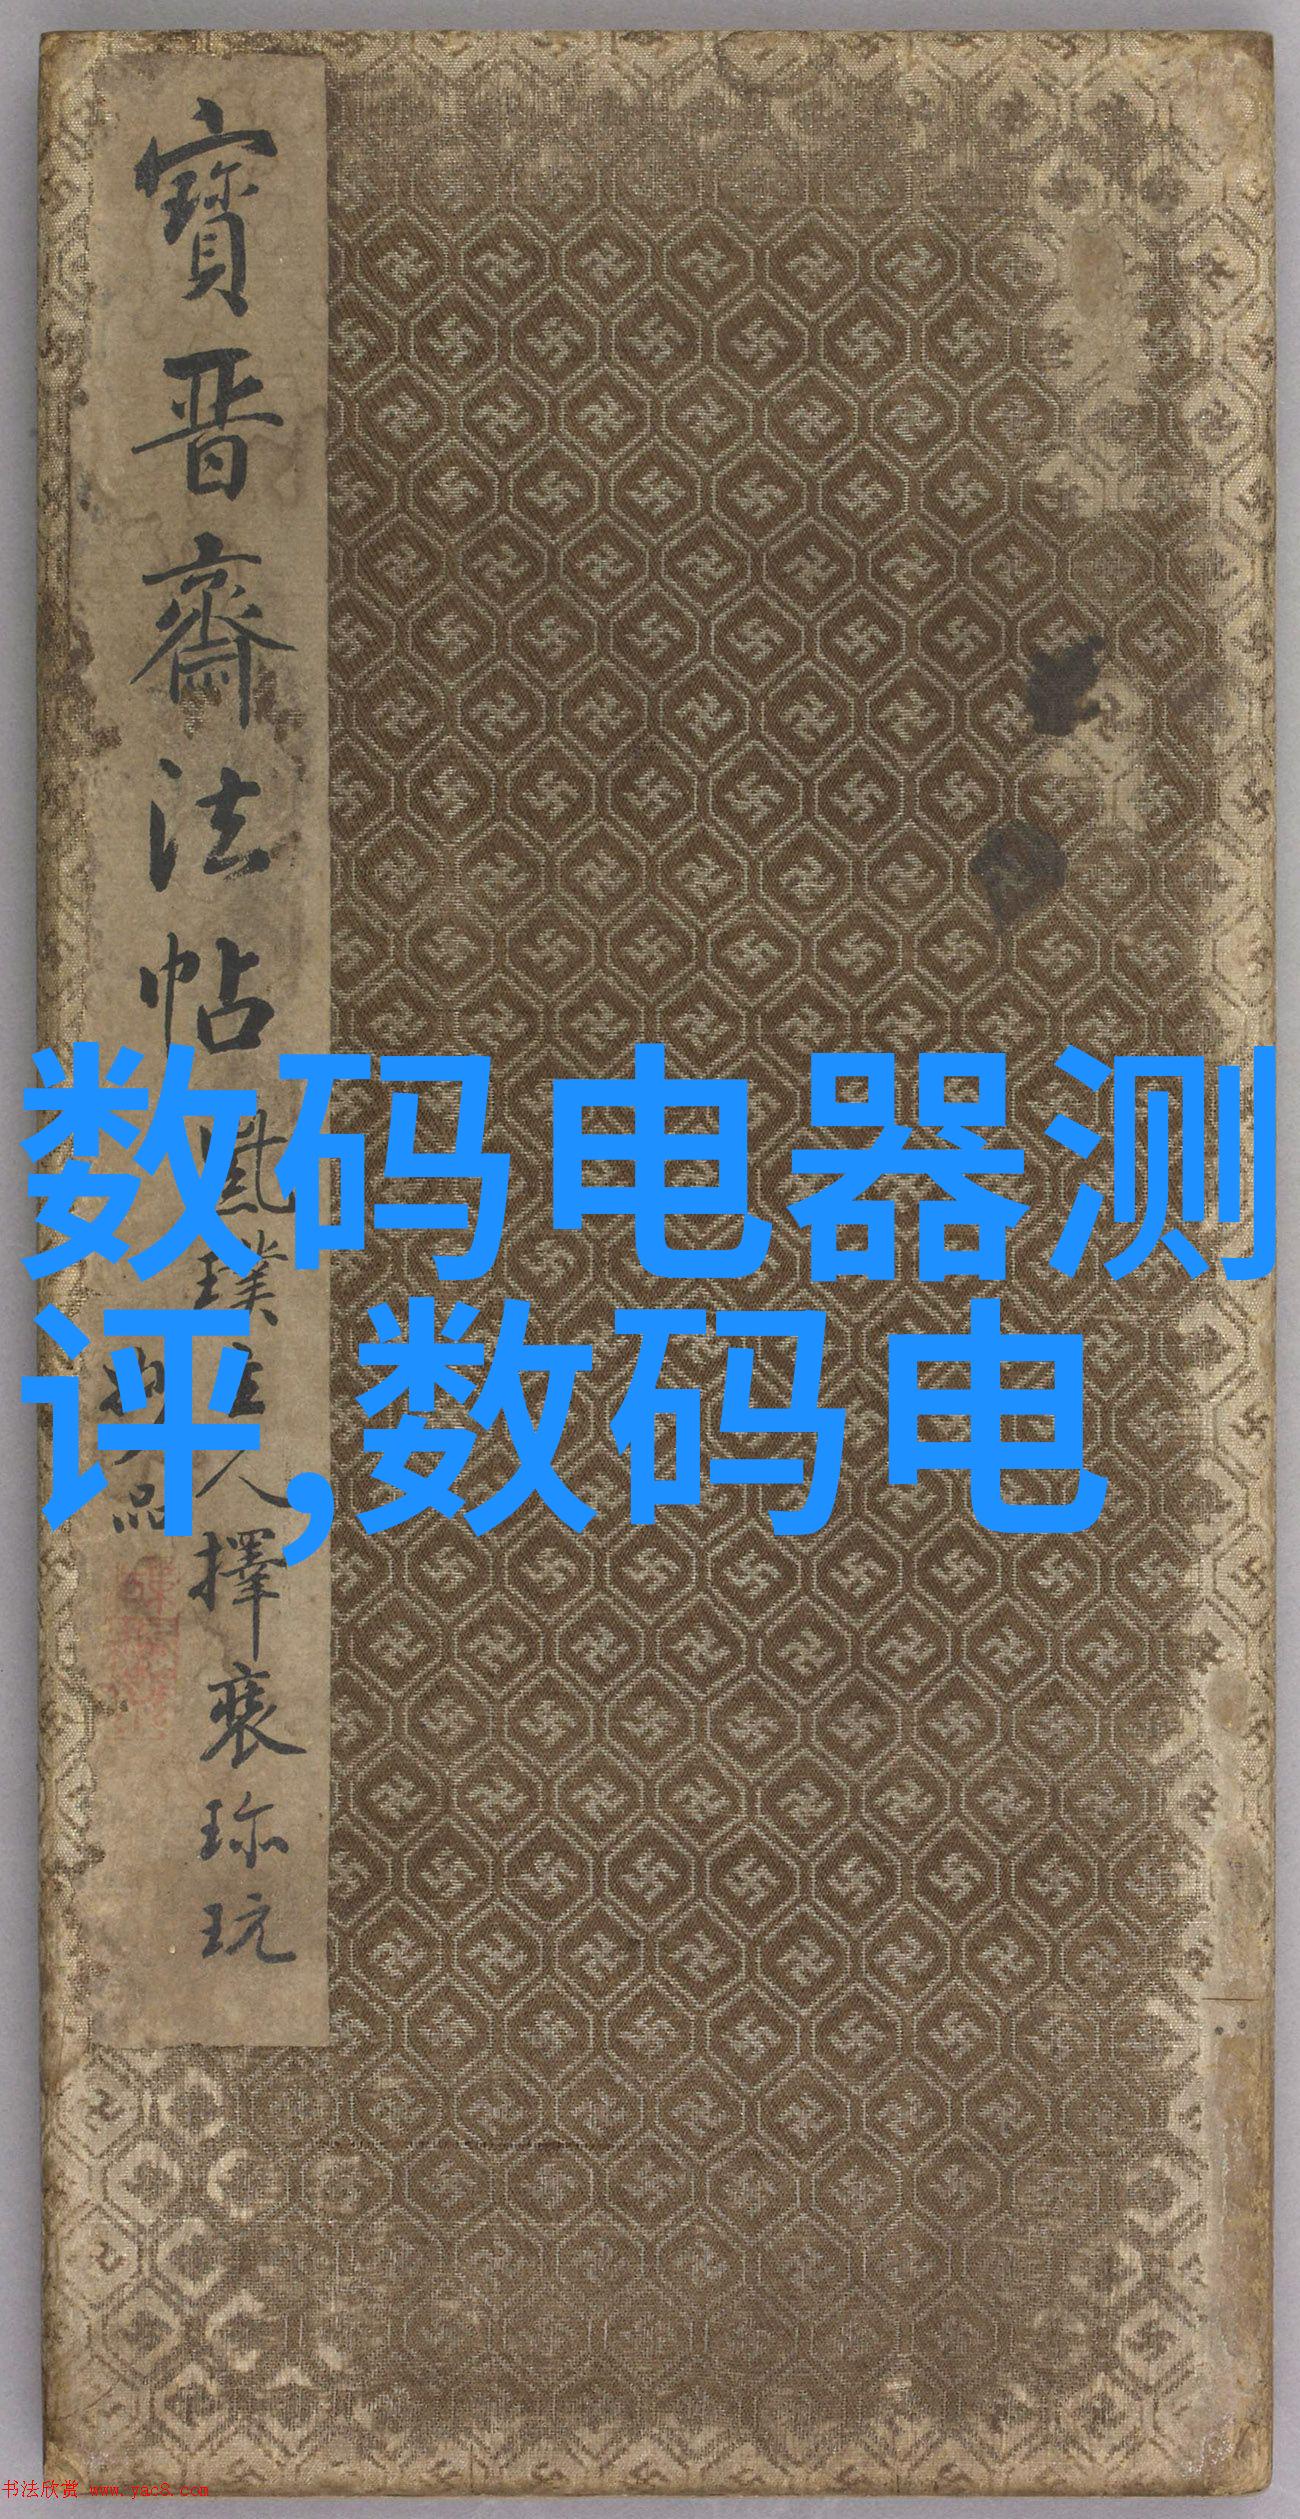 寶晉齋法帖
鳳璞主人擇裘珎玩
品
数码电器测
评,数码电
书法欣赏 www.yac8.com